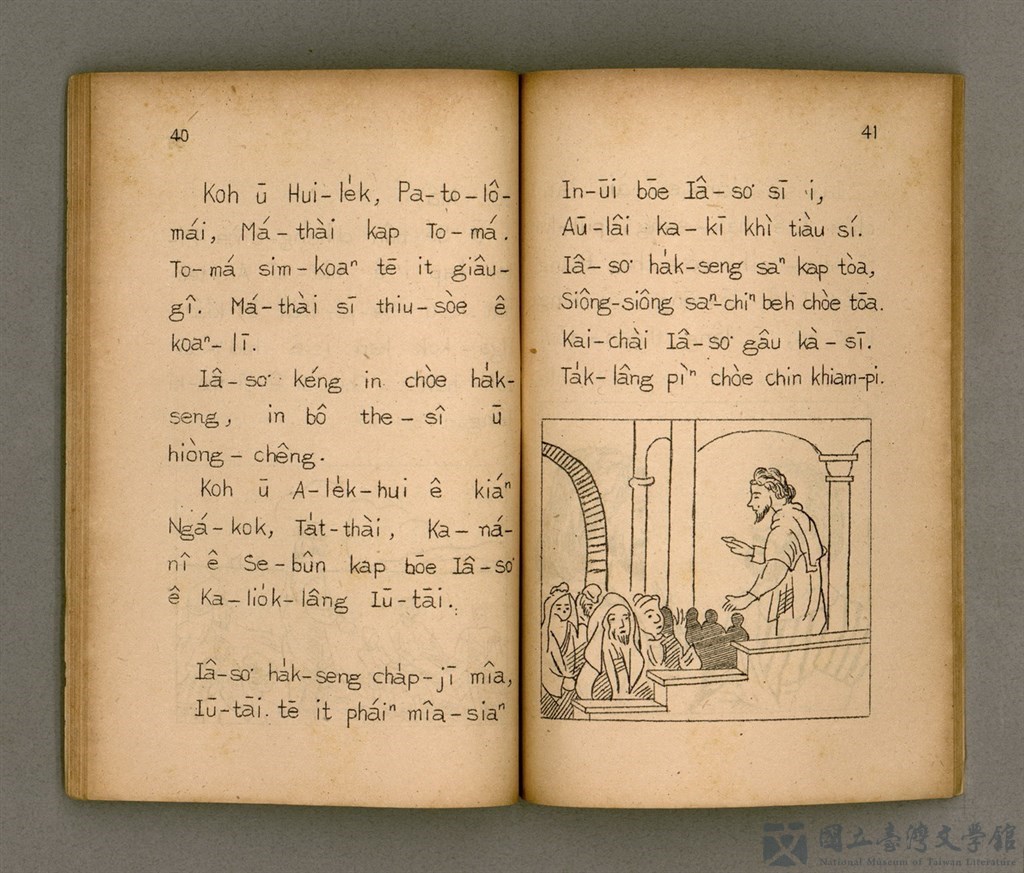 40
Koh ū Hui-le̍k, Pa-to-lô-
mái, Má-thài kap To-má.
To-má sim-koaⁿ tē it giâu-
gî. Má-thài sī thiu-sòe ê
koaⁿ-lī.
Iâ-so͘ kéng in chòe ha̍k-
seng, in bô the-sî ū
hiòng-chêng.
Koh ū A-le̍k-hui ê kiáⁿ
Ngá-kok, Ta̍t-thài, Ka-ná-
nî ê Se-bûn kap bōe Iâ-so͘
ê Ka-lio̍k-lâng Iū-tāi.
Iâ-so͘ ha̍k-seng cha̍p-jī mîa,
Iū-tāi tē it pháiⁿ mîa-siaⁿ
41
In-ūi bōe Iâ-so͘ sī i,
Aū-lâi ka-kī khì tiàu sí.
Iâ-so͘ ha̍k-seng saⁿ kap tòa,
Siông-siông saⁿ-chiⁿ beh chòe tōa.
Kai-chài Iâ-so͘ gâu kà-sī.
Ta̍k-lâng pìⁿ chòe chin khiam-pi.
國立臺灣文學館
National Museum of Taiwan Literature